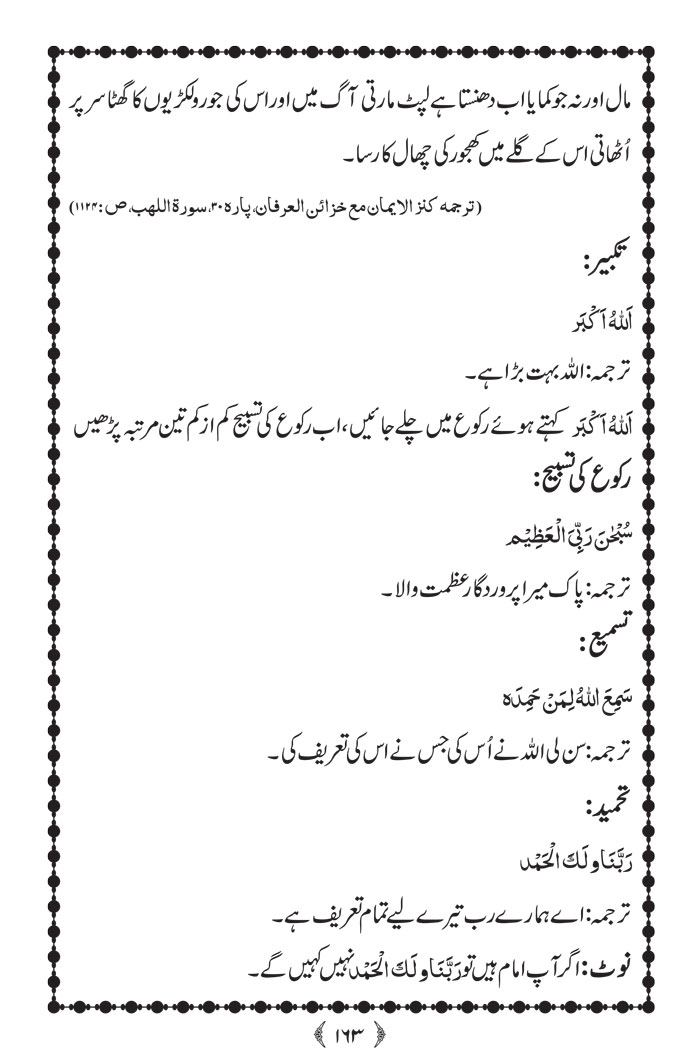 مال اور نہ جو کمایا اب دھنستا ہے لپٹ مارتی آگ میں اور اس کی جورو لکڑیوں کا گھٹا سر پر
اُٹھاتی اس کے گلے میں کھجور کی چھال کا رسا۔
(ترجمہ کنز الایمان مع خزائن العرفان، پارہ۳۰، سورۃ اللھب، ص:۱۱۲۴)
تکبیر:
اَللہُ اَکْبَر
ترجمہ: اللہ بہت بڑا ہے۔
اَللہُ اَکْبَر کہتے ہوئے رکوع میں چلے جائیں، اب رکوع کی تسبیح کم از کم تین مرتبہ پڑھیں
رکوع کی تسبیح:
سُبْحٰنَ رَبِّیَ الْعَظِیْم
ترجمہ: پاک میرا پروردگار عظمت والا۔
تسمیع:
سَمِعَ اللہُ لِمَنْ حَمِدَہ
ترجمہ: سن لی اللہ نے اُس کی جس نے اس کی تعریف کی۔
تحمید:
رَبَّنَا و لَكَ الْحَمْد
ترجمہ: اے ہمارے رب تیرے لیے تمام تعریف ہے۔
نوٹ: اگر آپ امام ہیں تو رَبَّنَا و لَكَ الْحَمْد نہیں کہیں گے۔
۱۶۳